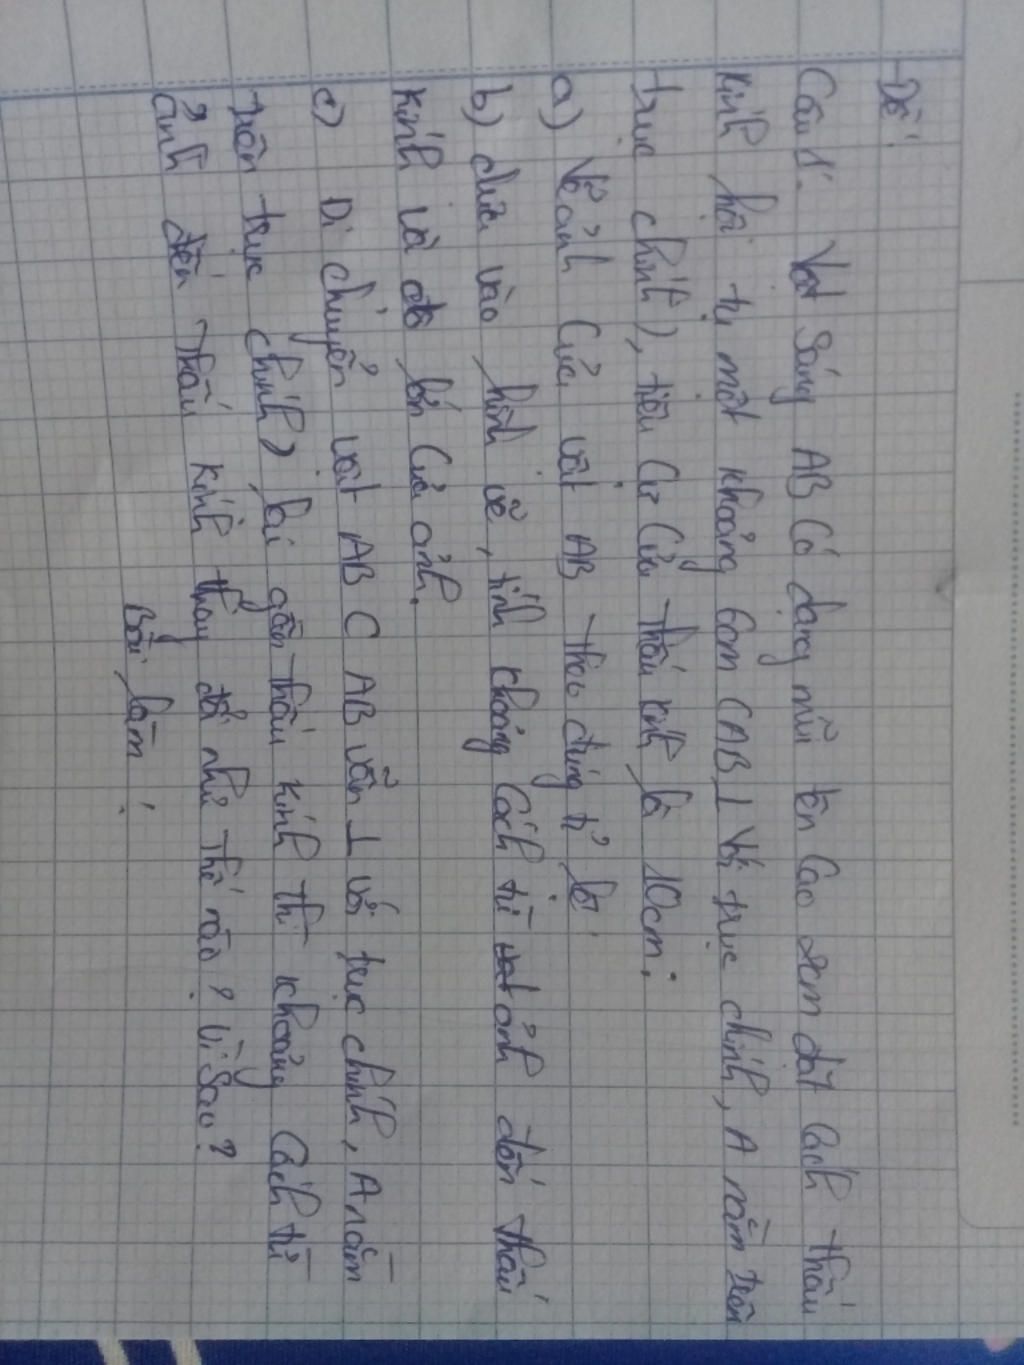 Đề:
Câu 1: Vật Sáng AB Có dạng mũi tên Cao cm đặt Cách thấu
kính hội tụ một khoảng 6cm (AB ⊥ Với trục chính, A nằm trên
trục chính), tiêu Cự Của thấu kính là 10cm.
a) Vẽ ảnh Của vật AB theo đúng tỉ lệ.
b) dựa vào hình vẽ, tính khoảng Cách từ ảnh đến thấu
kính và độ lớn Của ảnh.
c) Di chuyển vật AB ( AB vẫn ⊥ với trục chính, A nằm
trên trục chính) lại gần thấu kính thì khoảng Cách từ
ảnh đến thấu kính thay đổi như thế nào? Vì Sao?
Bài làm: